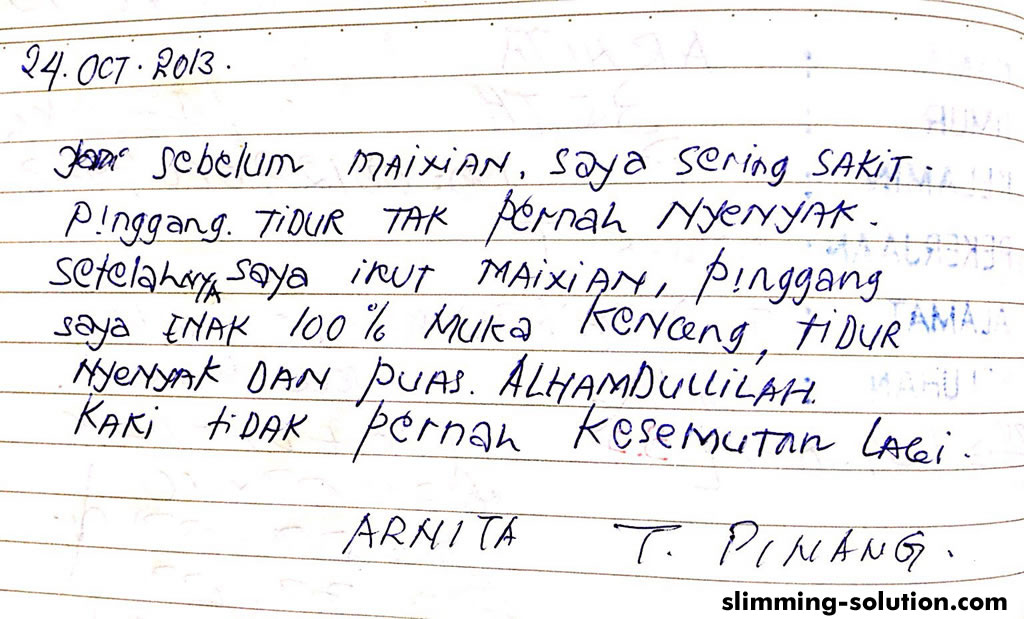 24. OCT. 2013.
sebelum MAIXIAN. saya sering SAKIT.
Pinggang. TIDUR TAK pernah NYENYAK.
setelahNYA saya ikUT MAIXIAN, pinggang
saya ENAK 100% MUKA KENCeng, TIDUR
NYENYAK DAN PUAS. ALHAMDULLILAH.
KAKi tiDAK pernah Kesemutan LAGi.
ARNITA T. PINANG.
slimming-solution.com